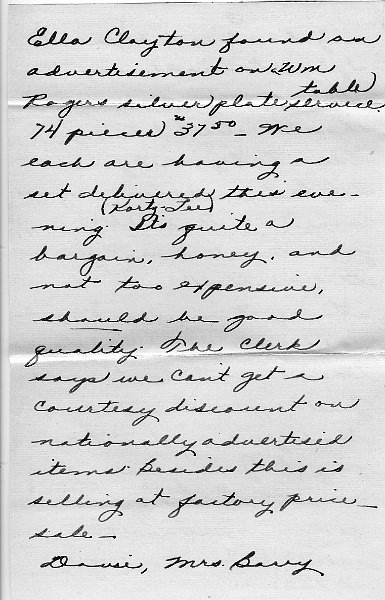 Ella Clayton found an
advertisement on Wm
Rogers silver plate table service.
74 pieces) $37.50 – We
each are having a
set delivered this eve-
(Korty-Lee)
ning. It's quite a
bargain, honey, and
not too expensive,
should be good
quality. The clerk
says we can't get a
courtesy discount on
nationally advertised
items. Besides this is
selling at factory price
sale –
Davie, Mrs. Barry